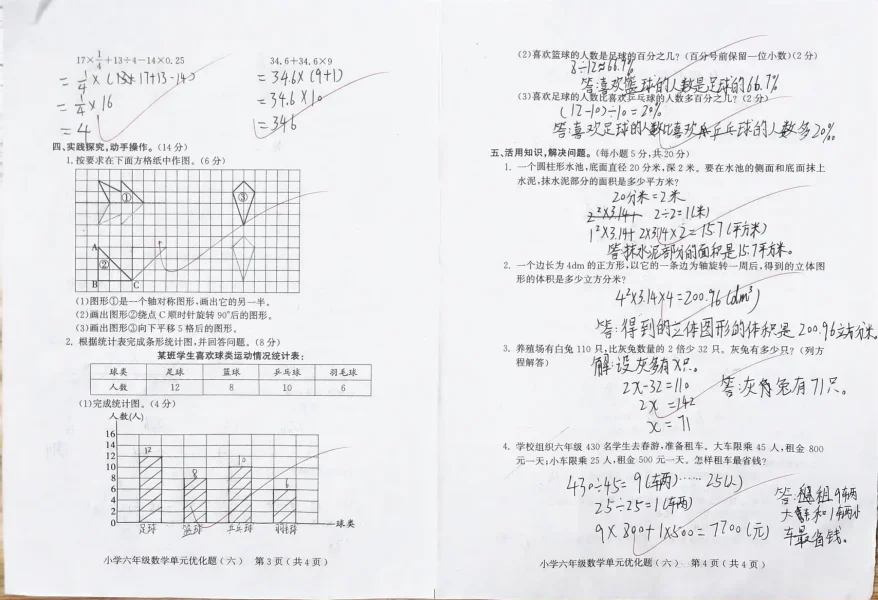 17×1/4+13÷4-14×0.25 34.6+34.6×9
=1/4×(17+13-14) =34.6×(9+1)
=1/4×16 =34.6×10
=4 =346
四、实践探究,动手操作。(14分)
1.按要求在下面方格纸中作图。(6分)
① ③
A
②
B C
(1)图形①是一个轴对称图形,画出它的另一半。
(2)画出图形②绕点C顺时针旋转90°后的图形。
(3)画出图形③向下平移5格后的图形。
2.根据统计表完成条形统计图,并回答问题。(8分)
某班学生喜欢球类运动情况统计表:
球类 足球 篮球 乒乓球 羽毛球
人数 12 8 10 6
(1)完成统计图。(4分)
人数(人)
16
14
12 12
10 10
8 8
6 6
4
2
0 足球 篮球 乒乓球 羽毛球 球类
小学六年级数学单元优化题(六) 第3页(共4页)
(2)喜欢篮球的人数是足球的百分之几?(百分号前保留一位小数)(2分)
8÷12≈66.7%
答:喜欢篮球的人数是足球的66.7%
(3)喜欢足球的人数比喜欢乒乓球的人数多百分之几?(2分)
(12-10)÷10=20%
答:喜欢足球的人数比喜欢乒乓球的人数多20%。
五、活用知识,解决问题。(每小题5分,共20分)
1.一个圆柱形水池,底面直径20分米,深2米。要在水池的侧面和底面抹上
水泥,抹水泥部分的面积是多少平方米?
20分米=2米
2²×3.14+ 2÷2=1(米)
1²×3.14+2×3.14×2=15.7(平方米)
答:抹水泥部分的面积是15.7平方米。
2.一个边长为4dm的正方形,以它的一条边为轴旋转一周后,得到的立体图
形的体积是多少立方分米?
4²×3.14×4=200.96(dm³)
答:得到的立体图形的体积是200.96立方分米。
3.养殖场有白兔110只,比灰兔数量的2倍少32只。灰兔有多少只?(列方
程解答)
解:设灰兔有x只。
2x-32=110 答:灰兔有71只。
2x=142
x=71
4.学校组织六年级430名学生去春游,准备租车。大车限乘45人,租金800
元一天;小车限乘25人,租金500元一天。怎样租车最省钱?
430÷45=9(车两)……25(人)
25÷25=1(车两)
9×800+1×500=7700(元)
答:租9车两
大车和1车两小
车最省钱。
小学六年级数学单元优化题(六) 第4页(共4页)